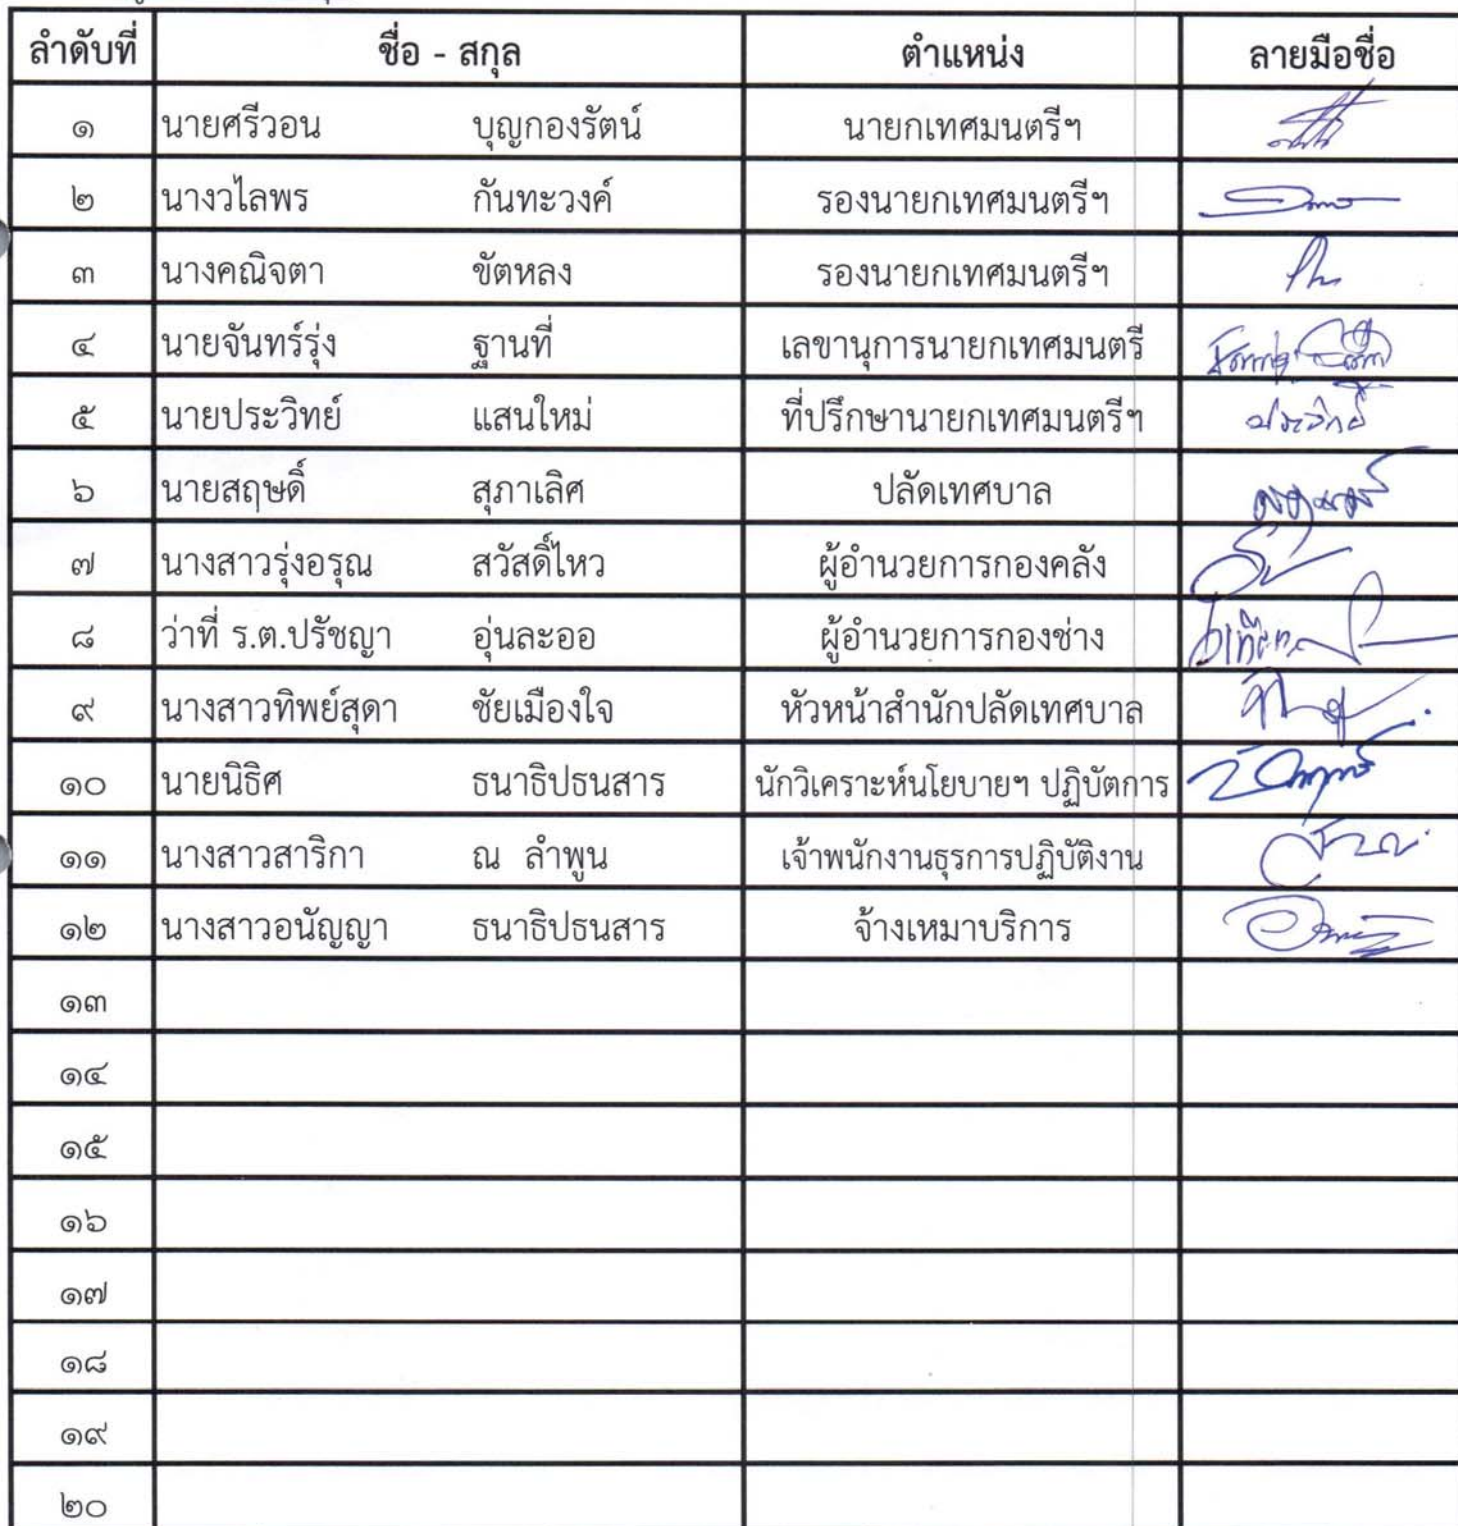 ลำดับที่ ชื่อ - สกุล ตำแหน่ง ลายมือชื่อ
๑ นายศรีวอน บุญกองรัตน์ นายกเทศมนตรีฯ
๒ นางวไลพร กันทะวงค์ รองนายกเทศมนตรีฯ
๓ นางคณิจตา ขัตหลง รองนายกเทศมนตรีฯ
๔ นายจันทร์รุ่ง ฐานที่ เลขานุการนายกเทศมนตรี
๕ นายประวิทย์ แสนใหม่ ที่ปรึกษานายกเทศมนตรีฯ ประวิทย์
๖ นายสฤษดิ์ สุภาเลิศ ปลัดเทศบาล
๗ นางสาวรุ่งอรุณ สวัสดิ์ไหว ผู้อำนวยการกองคลัง
๘ ว่าที่ ร.ต.ปรัชญา อุ่นละออ ผู้อำนวยการกองช่าง
๙ นางสาวทิพย์สุดา ชัยเมืองใจ หัวหน้าสำนักปลัดเทศบาล
๑๐ นายนิธิศ ธนาธิปธนสาร นักวิเคราะห์นโยบายฯ ปฏิบัตการ
๑๑ นางสาวสาริกา ณ ลำพูน เจ้าพนักงานธุรการปฏิบัติงาน
๑๒ นางสาวอนัญญา ธนาธิปธนสาร จ้างเหมาบริการ
๑๓
๑๔
๑๕
๑๖
๑๗
๑๘
๑๙
๒๐